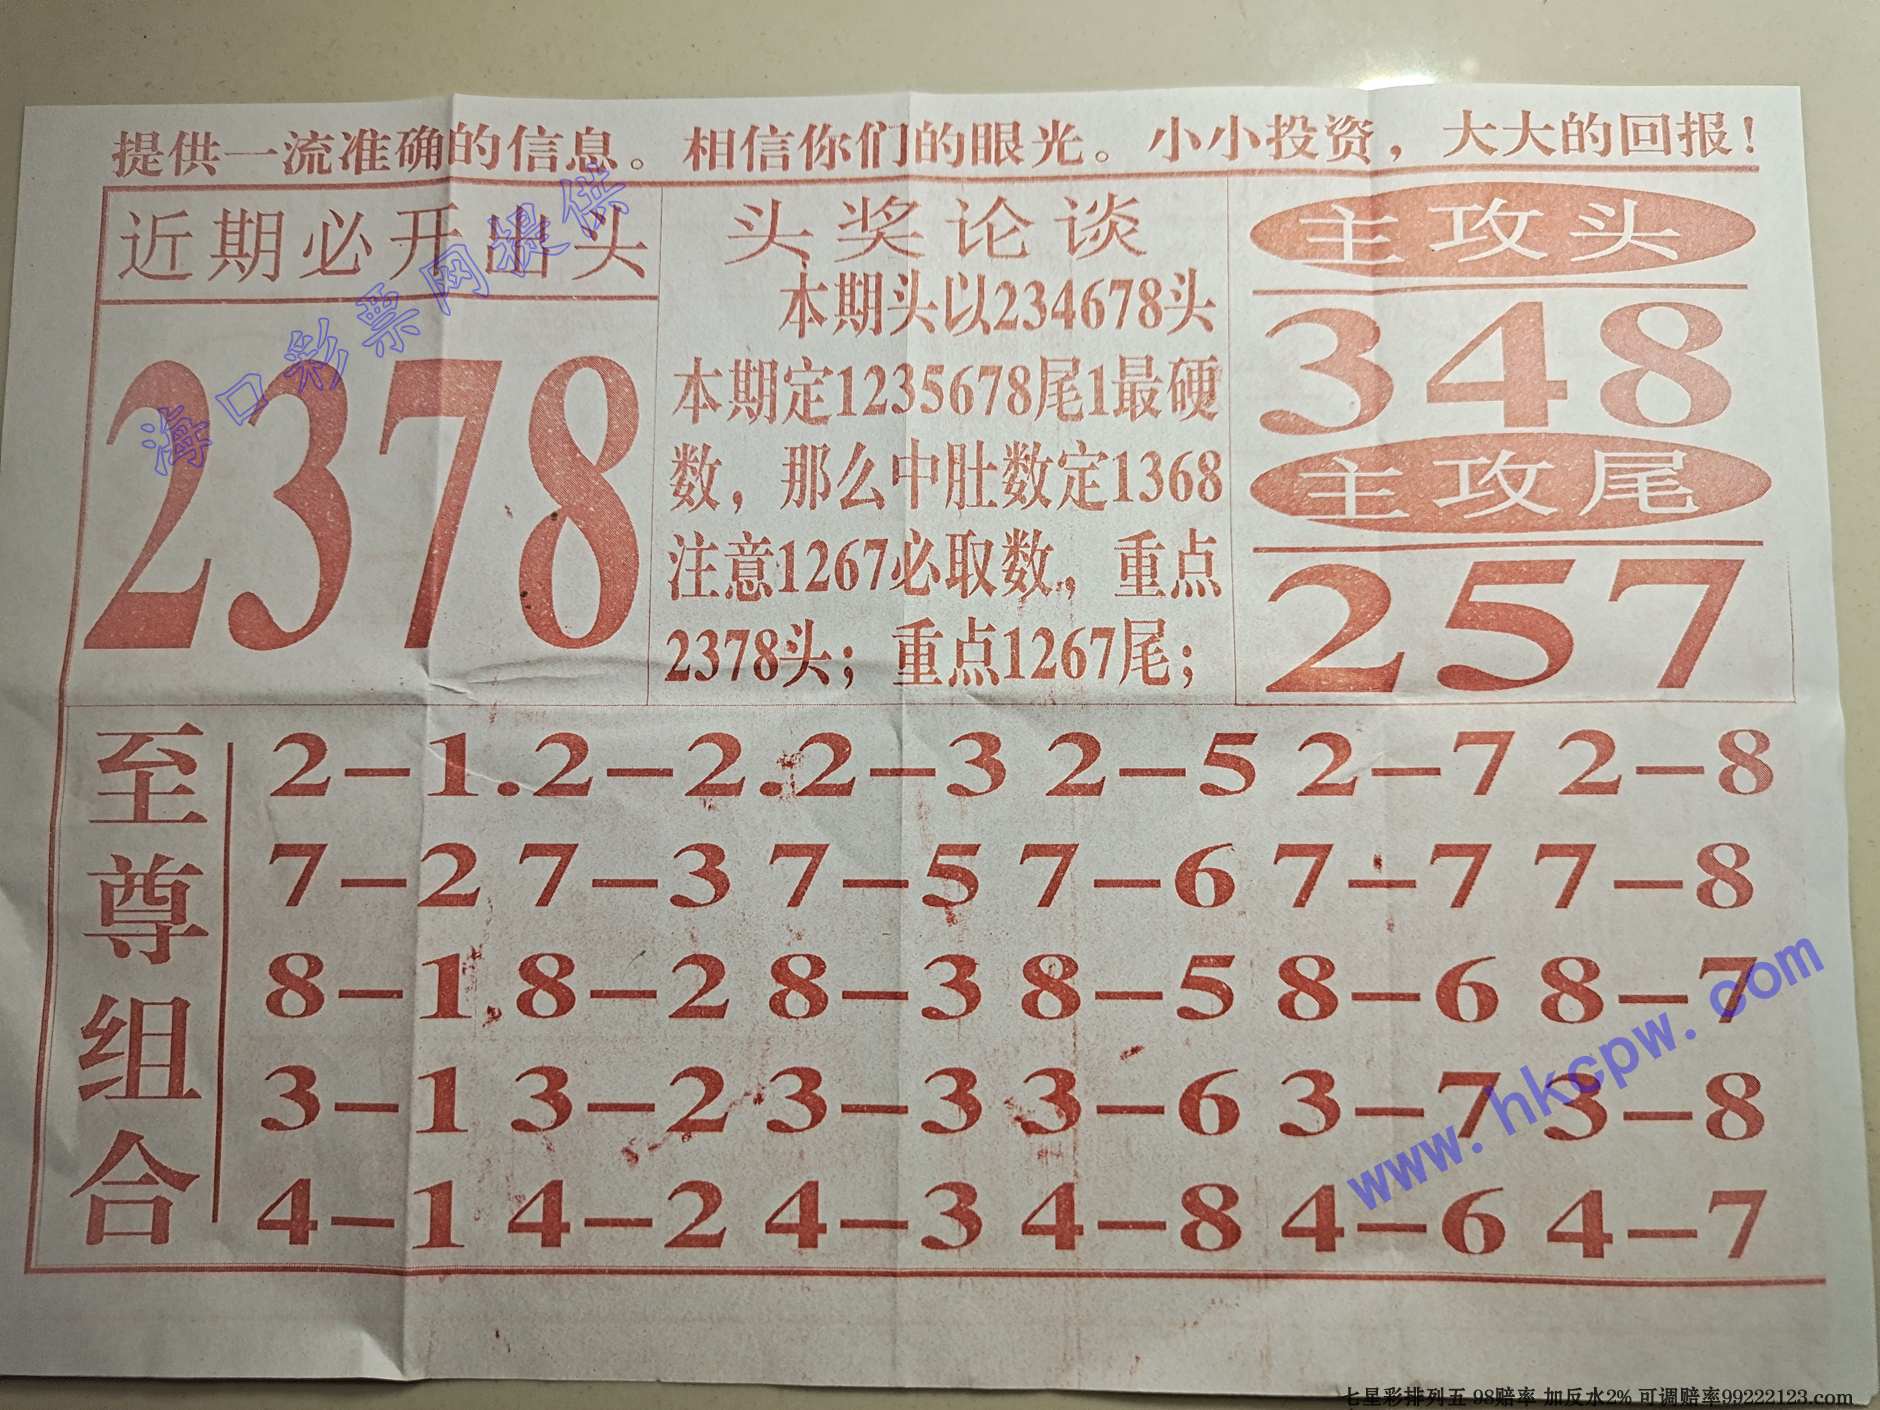 提供一流准确的信息。相信你们的眼光。小小投资，大大的回报！
近期必开出头
2378
头奖论谈
本期头以234678头
本期定1235678尾1最硬
数，那么中肚数定1368
注意1267必取数,，重点
2378头；重点1267尾；
主攻头
348
主攻尾
257
至尊组合
2－1.2－2.2－3 2－5 2－7 2－8
7－2 7－3 7－5 7－6 7－7 7－8
8－1.8－2 8－3 8－5 8－6 8－7
3－1 3－2 3－3 3－6 3－7 3－8
4－1 4－2 4－3 4－8 4－6 4－7
海口彩票网提供
www.hkcpw.com
七星彩排列五 98赔率 加反水2% 可调赔率99222123.com